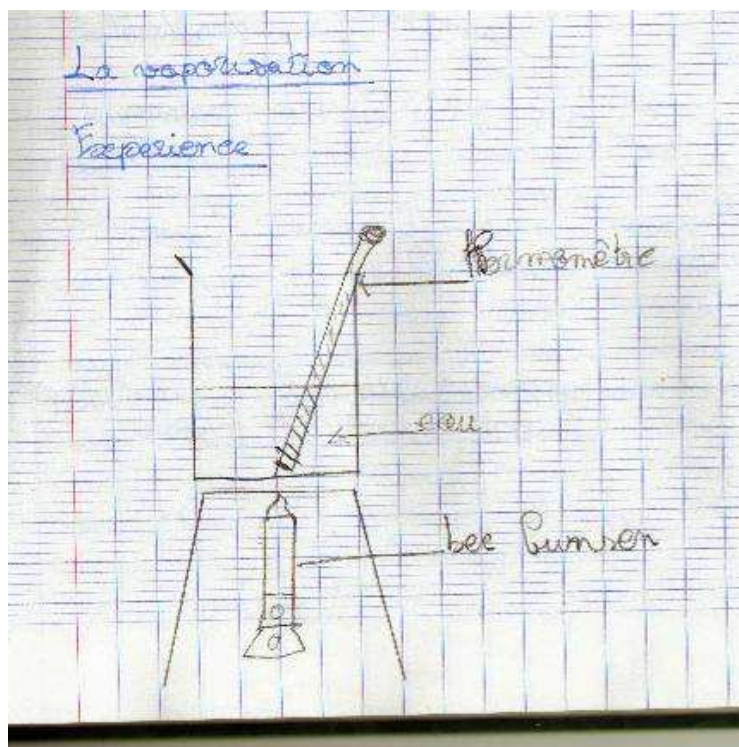 La vaporisation
Experience
thermomètre
eau
bec bunsen